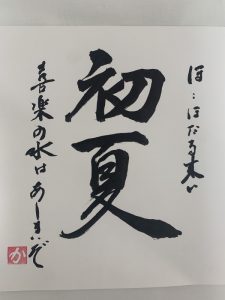 ほ:ほたる来い
初夏
喜楽の水はあーまいぞ
か